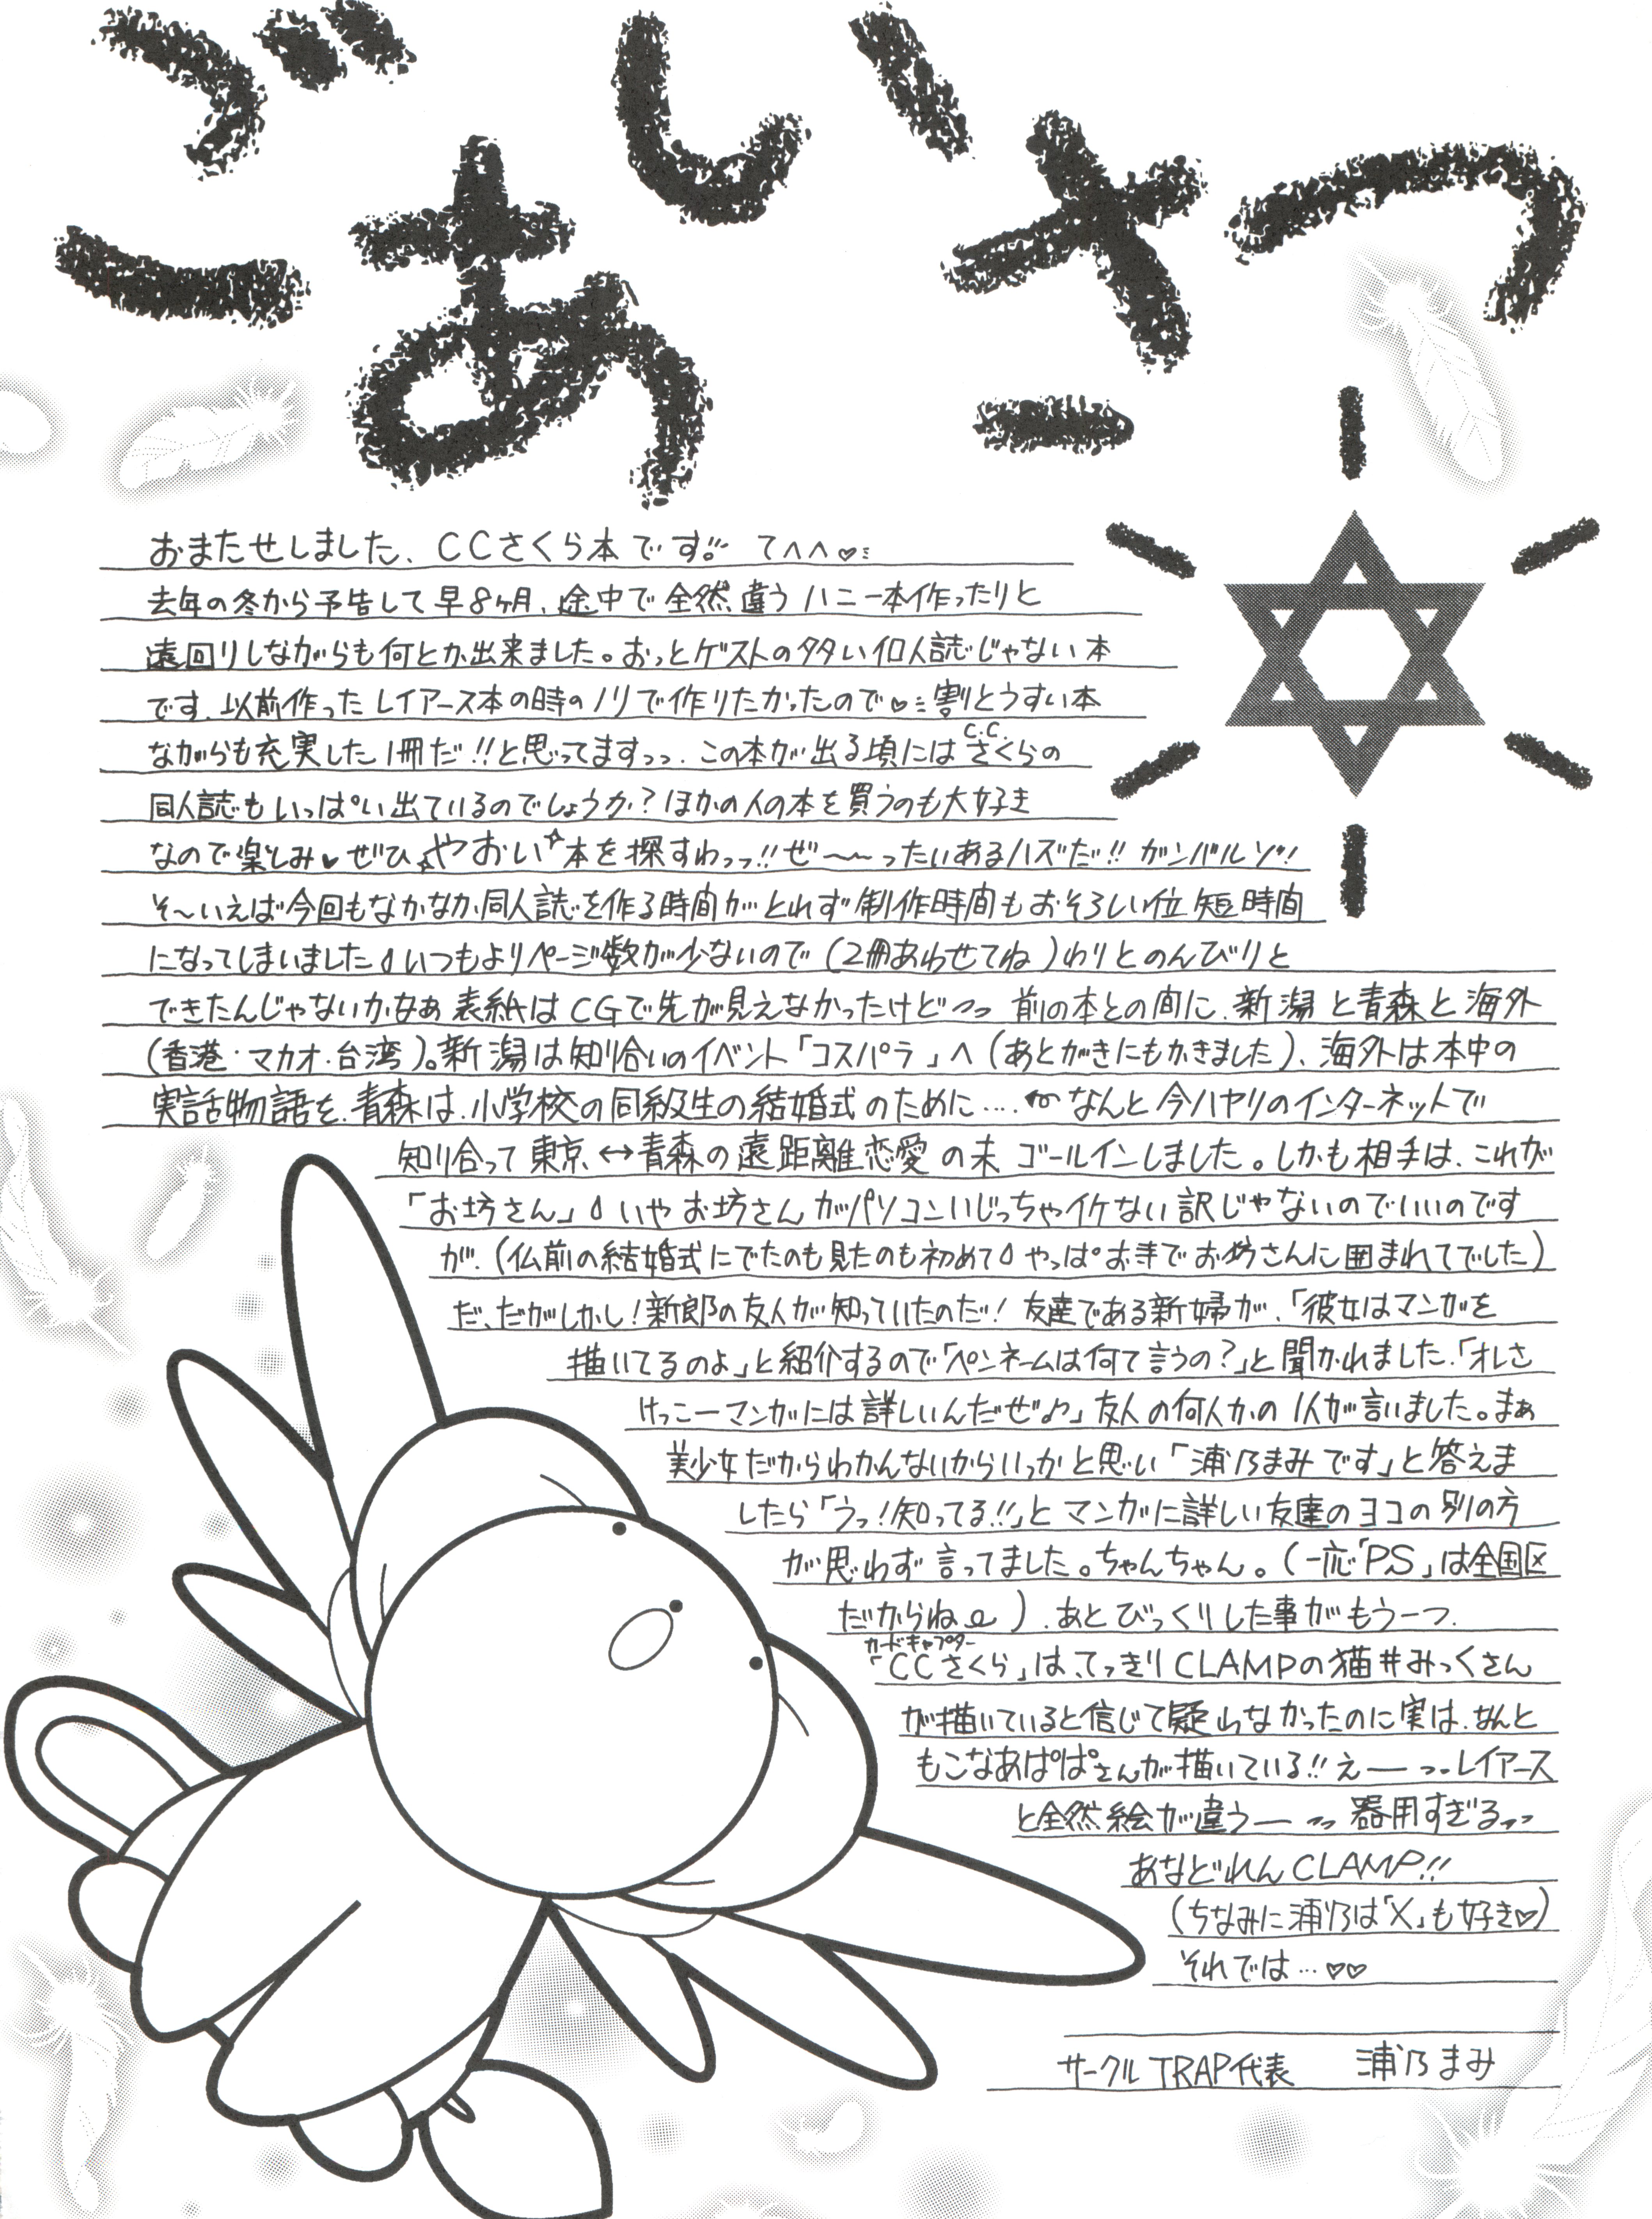 ごあいさつ
おまたせしました、CCさくら本です!! て^^♡
去年の冬から予告して早8ヶ月、途中で全然違うハニー本作ったりと
遠回りしながらも何とか出来ました。おっとゲストの多い個人誌じゃない本
です、以前作ったレイアース本の時のノリで作りたかったので♡割とうすい本
ながらも充実した1冊だ!!と思ってますっっ、この本が出る頃には
C.C.
さくらの
同人誌もいっぱい出ているのでしょうか?ほかの人の本を買うのも大好き
なので楽しみ♥ぜひやおい本を探すわっっ!!ぜ〜〜ったいあるハズだ!!ガンバルゾ!!
そ〜いえば今回もなかなか同人誌を作る時間がとれず制作時間もおそろしい位短時間
になってしまいましたいつもよりページ数が少ないので(2冊あわせてね)わりとのんびりと
できたんじゃないかなぁ表紙はCGで先が見えなかったけどっっ 前の本との間に、新潟と青森と海外
(香港・マカオ・台湾)。新潟は知り合いのイベント「コスパラ」へ(あとがきにもかきました)、海外は本中の
実話物語を、青森は、小学校の同級生の結婚式のために‥‥なんと今ハヤリのインターネットで
知り合って東京↔青森の遠距離恋愛の末ゴールインしました。しかも相手は、これが
「お坊さん」いやお坊さんがパソコンいじっちゃイケない訳じゃないのでいいのです
が、(仏前の結婚式にでたのも見たのも初めてやっぱお寺でお坊さんに囲まれてでした)
だ、だがしかし!新郎の友人が知っていたのだ!友達である新婦が、「彼女はマンガを
描いてるのよ」と紹介するので「ペンネームは何て言うの?」と聞かれました、「オレさ
けっこーマンガには詳しいんだぜ♪」友人の何人かの1人が言いました。まぁ
美少女だからわかんないからいっかと思い「浦乃まみです」と答えま
したら「うっ!知ってる!!」とマンガに詳しい友達のヨコの別の方
が思わず言ってました。ちゃんちゃん。(一応「PS」は全国区
だからね)、あとびっくりした事がもう一つ、
カードキャプター
「CCさくら」は、てっきりCLAMPの猫井みっくさん
が描いていると信じて疑わなかったのに実は、なんと
もこなあぱぱさんが描いている!!えーっっレイアース
と全然絵が違うーっっ器用すぎるっっ
あなどれんCLAMP!!
(ちなみに浦乃は「X」も好き♡)
それでは…♡♡
サークルTRAP代表 浦乃まみ